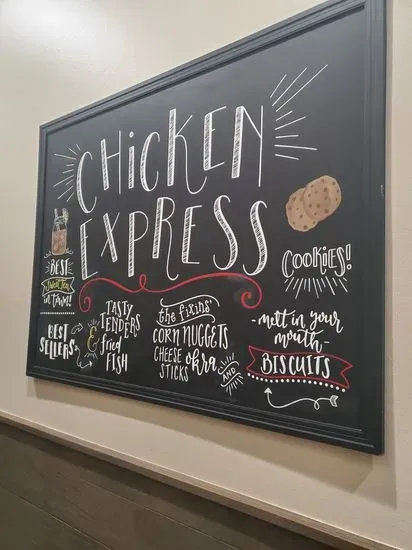 CHiCKEN
EXPRESS
BEST
Sweet Tea
in town!
COOKiES!
BEST
SELLERS
TASTY
TENDERS
&
fried
FISH
the fixins'
CORN NUGGETS
CHEESE
STICKS
okra
AND
-melt in your
mouth-
BISCUITS